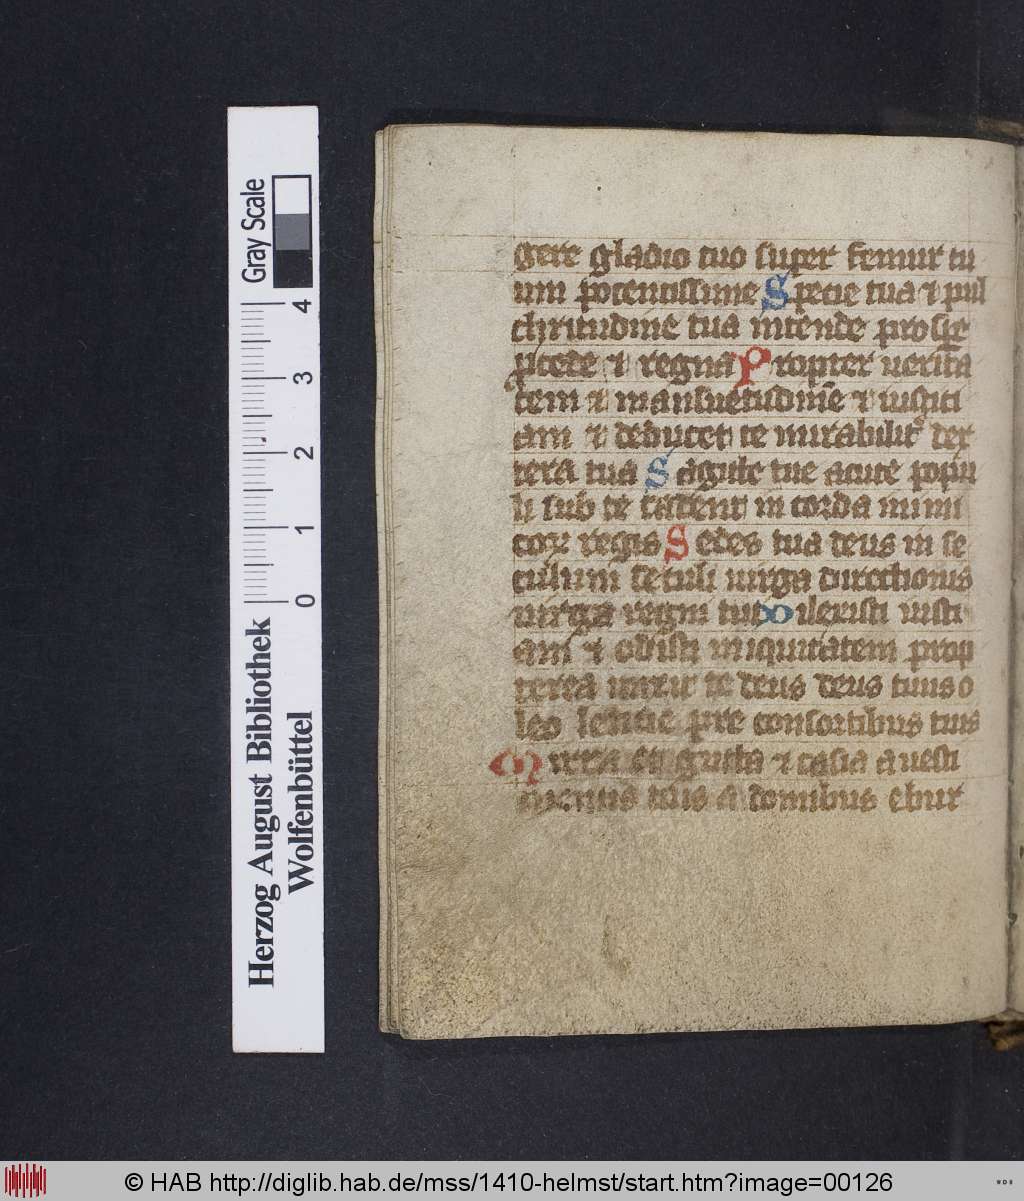 gere gladio tuo super femur tu
um potentissime Specie tua et pul
chritudine tua intende prospe
p̱cede et regna Propter uerita
tem et mansuetudinē et iusticī
am et deducet te mirabilit̉ dex
tera tua Sagitte tue acute popu
li sub te cadent in corda inimi
coꝝ regis Sedes tua deus in se
culum seculi uirga directionis
uirga regni tui Dilexisti iusti
am et odisti iniquitatem prop
terea unxit te deus deus tuus o
leo leticie pre consortibus tuis
Mirra et gutta et casia a uesti
mentis tuis a domibus ebur
Gray Scale
0 1 2 3 4
Herzog August Bibliothek
Wolfenbüttel
© HAB http://diglib.hab.de/mss/1410-helmst/start.htm?image=00126